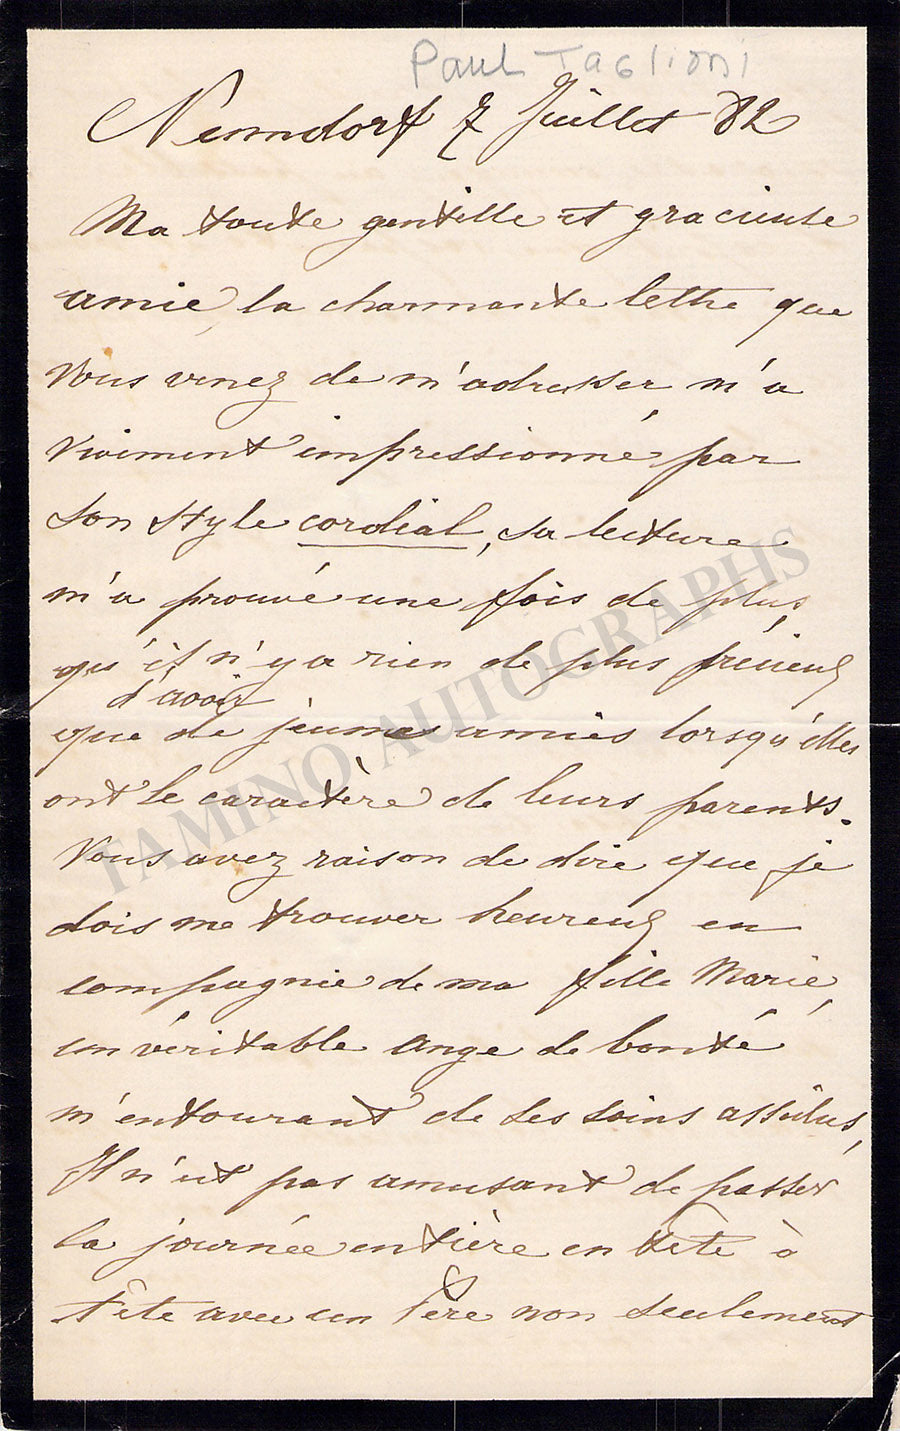 Paul Taglioni
Nenndorf 7 Juillet 82
Ma toute gentille et gracieuse
amie, la charmante lettre que
vous venez de m'adresser m'a
vivement impressionné par
son style cordial, sa lecture
m'a prouvé une fois de plus,
qu'il n'y a rien de plus précieux
d'avoir
que de jeunes amies lorsqu'elles
ont le caractère de leurs parents.
Vous avez raison de dire que je
dois me trouver heureux en
compagnie de ma fille Marie,
un véritable ange de bonté
m'entourant de ses soins assidus,
Il n'est pas amusant de passer
la journée entière en tête à
tête avec un Père non seulement
TAMINO AUTOGRAPHS